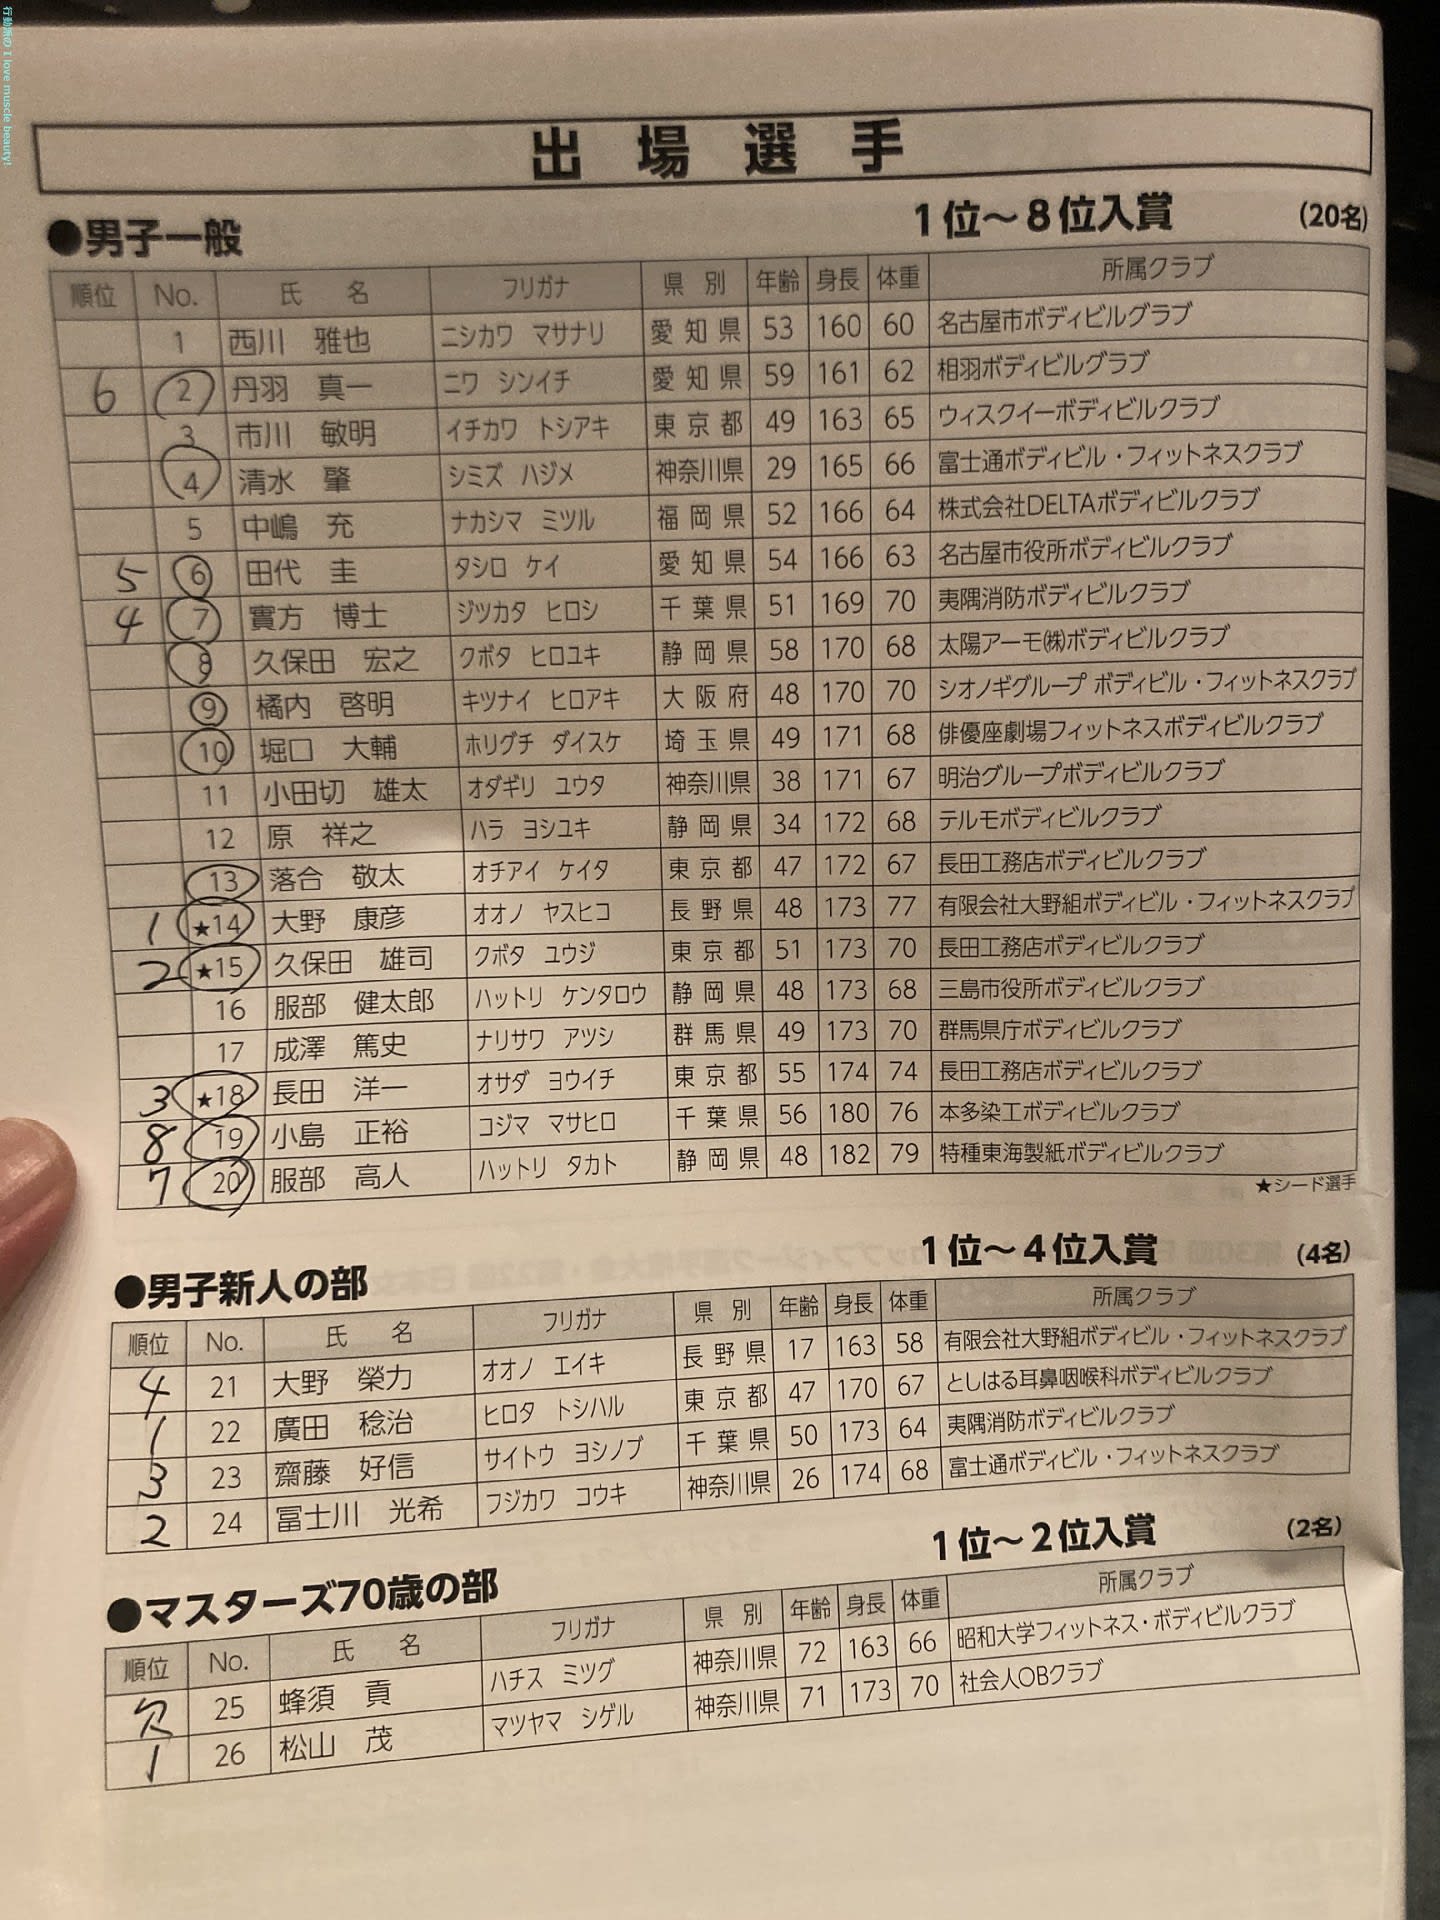 行動派の I love muscle beauty!
出場選手
●男子一般 1位～8位入賞 (20名)
順位 No. 氏 名 フリガナ 県 別 年齢 身長 体重 所属クラブ
1 西川 雅也 ニシカワ マサナリ 愛知県 53 160 60 名古屋市ボディビルグラブ
6 2 丹羽 真一 ニワ シンイチ 愛知県 59 161 62 相羽ボディビルグラブ
3 市川 敏明 イチカワ トシアキ 東京都 49 163 65 ウィスクイーボディビルクラブ
4 清水 肇 シミズ ハジメ 神奈川県 29 165 66 富士通ボディビル・フィットネスクラブ
5 中嶋 充 ナカシマ ミツル 福岡県 52 166 64 株式会社DELTAボディビルクラブ
5 6 田代 圭 タシロ ケイ 愛知県 54 166 63 名古屋市役所ボディビルクラブ
4 7 實方 博士 ジツカタ ヒロシ 千葉県 51 169 70 夷隅消防ボディビルクラブ
8 久保田 宏之 クボタ ヒロユキ 静岡県 58 170 68 太陽アーモ㈱ボディビルクラブ
9 橘内 啓明 キツナイ ヒロアキ 大阪府 48 170 70 シオノギグループ ボディビル・フィットネスクラブ
10 堀口 大輔 ホリグチ ダイスケ 埼玉県 49 171 68 俳優座劇場フィットネスボディビルクラブ
11 小田切 雄太 オダギリ ユウタ 神奈川県 38 171 67 明治グループボディビルクラブ
12 原 祥之 ハラ ヨシユキ 静岡県 34 172 68 テルモボディビルクラブ
13 落合 敬太 オチアイ ケイタ 東京都 47 172 67 長田工務店ボディビルクラブ
1 ★14 大野 康彦 オオノ ヤスヒコ 長野県 48 173 77 有限会社大野組ボディビル・フィットネスクラブ
2 ★15 久保田 雄司 クボタ ユウジ 東京都 51 173 70 長田工務店ボディビルクラブ
16 服部 健太郎 ハットリ ケンタロウ 静岡県 48 173 68 三島市役所ボディビルクラブ
17 成澤 篤史 ナリサワ アツシ 群馬県 49 173 70 群馬県庁ボディビルクラブ
3 ★18 長田 洋一 オサダ ヨウイチ 東京都 55 174 74 長田工務店ボディビルクラブ
8 19 小島 正裕 コジマ マサヒロ 千葉県 56 180 76 本多染工ボディビルクラブ
7 20 服部 高人 ハットリ タカト 静岡県 48 182 79 特種東海製紙ボディビルクラブ
★シード選手
●男子新人の部 1位～4位入賞 (4名)
順位 No. 氏 名 フリガナ 県 別 年齢 身長 体重 所属クラブ
4 21 大野 榮力 オオノ エイキ 長野県 17 163 58 有限会社大野組ボディビル・フィットネスクラブ
1 22 廣田 稔治 ヒロタ トシハル 東京都 47 170 67 としはる耳鼻咽喉科ボディビルクラブ
3 23 齋藤 好信 サイトウ ヨシノブ 千葉県 50 173 64 夷隅消防ボディビルクラブ
2 24 冨士川 光希 フジカワ コウキ 神奈川県 26 174 68 富士通ボディビル・フィットネスクラブ
●マスターズ70歳の部 1位～2位入賞 (2名)
順位 No. 氏 名 フリガナ 県 別 年齢 身長 体重 所属クラブ
欠 25 蜂須 貢 ハチス ミツグ 神奈川県 72 163 66 昭和大学フィットネス・ボディビルクラブ
1 26 松山 茂 マツヤマ シゲル 神奈川県 71 173 70 社会人OBクラブ